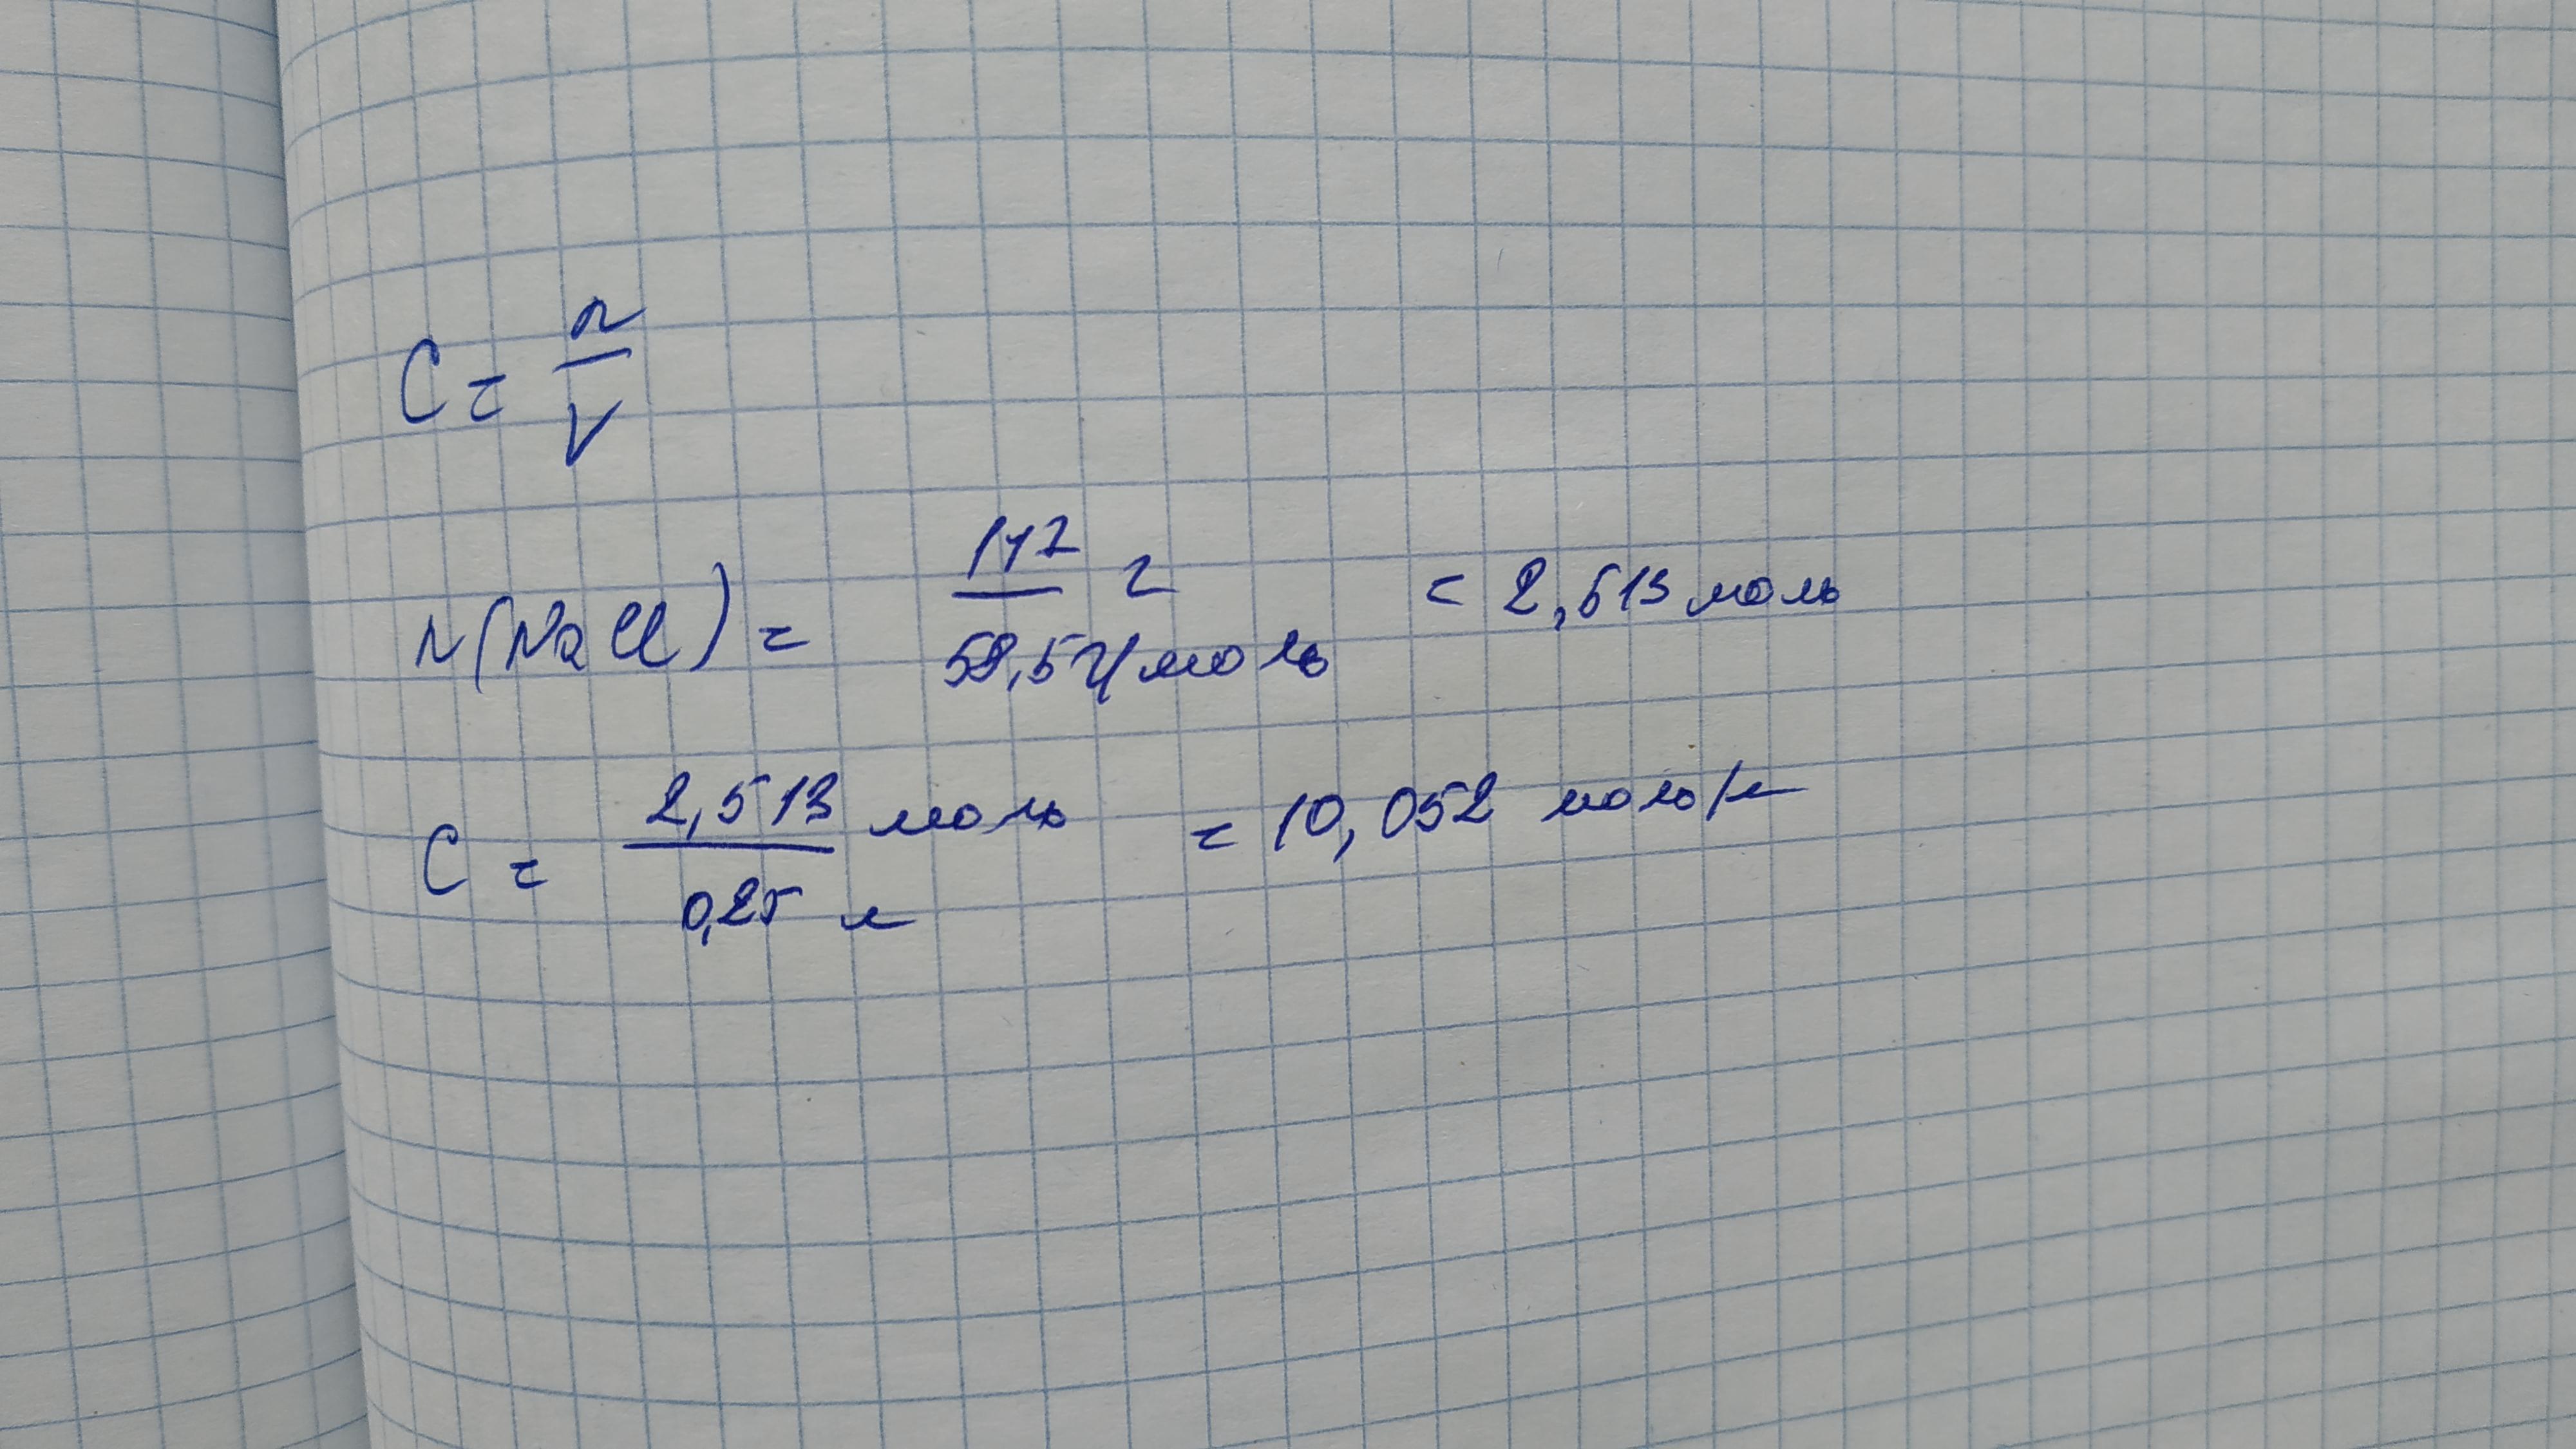 C = n/V
n(NaCl) = 147 г / 58,5 г/моль = 2,513 моль
C = 2,513 моль / 0,25 л = 10,052 моль/л